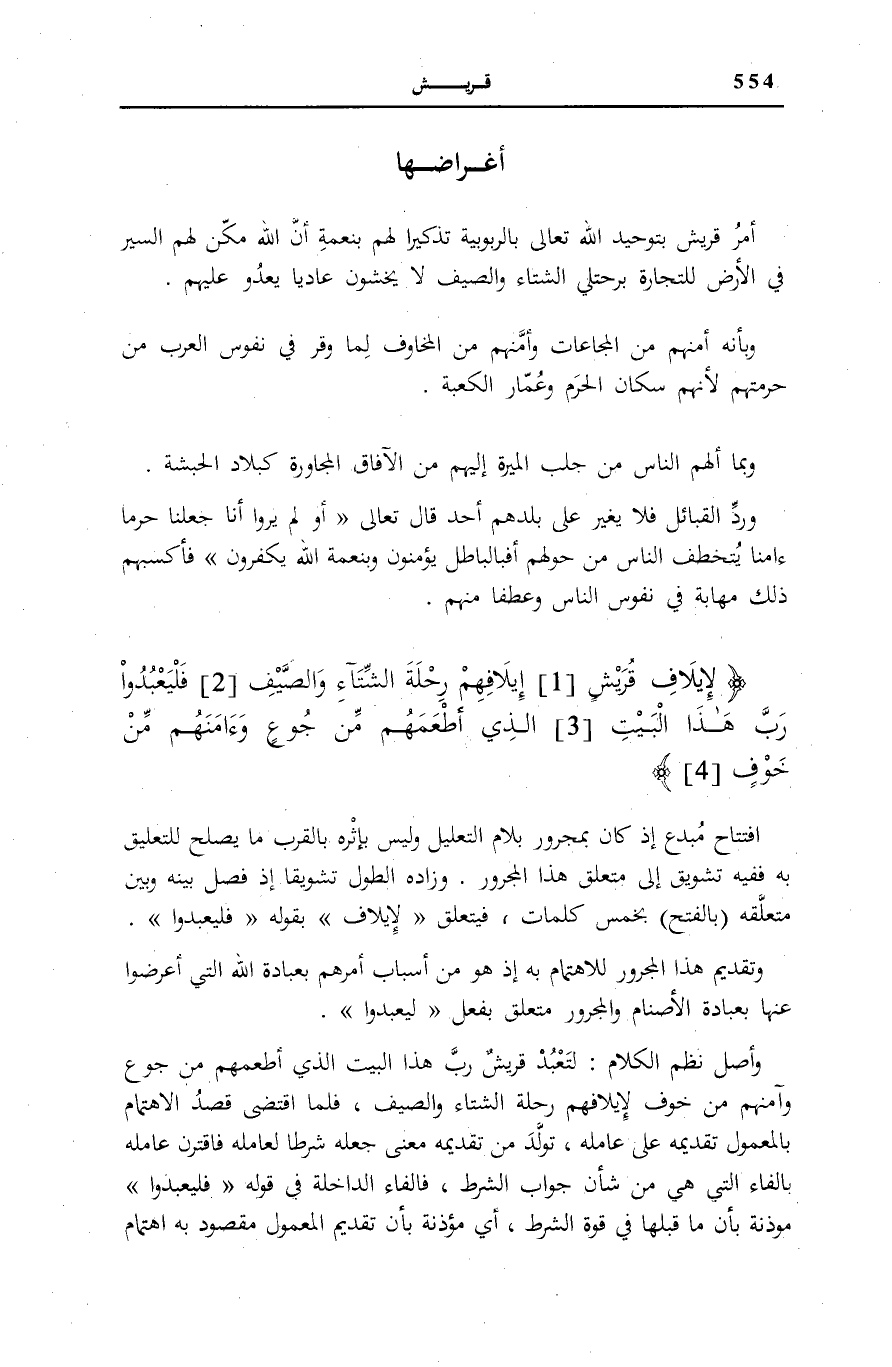 554
قريـــــش
أغــراضــها
أمرُ قريش بتوحيد الله تعالى بالربوبية تذكيرا لهم بنعمةِ أنَّ الله مكّن لهم السير
في الأرض للتجارة برحلتي الشتاء والصيف لا يخشون عاديا يعدُو عليهم .
وبأنه أمنهم من المجاعات وأمَّنهم من المخاوف لِما وقر في نفوس العرب من
حرمتهم لأنهم سكان الحرَم وعُمّار الكعبة .
وبما ألهم الناس من جلب الميرة إليهم من الآفاق المجاورة كبلاد الحبشة .
وردِّ القبائل فلا يغير على بلدهم أحد قال تعالى « أو لم يروا أنا جعلنا حرما
ءامنا يُتخطف الناس من حولهم أفبالباطل يؤمنون وبنعمة الله يكفرون » فأكسبهم
ذلك مهابة في نفوس الناس وعطفا منهم .
﴿ لِإِيلَافِ قُرَيْشٍ [1] إِيلَافِهِمْ رِحْلَةَ الشِّتَآءِ وَالصَّيْفِ [2] فَلْيَعْبُدُواْ
رَبَّ هَــٰذَا الْبَـيْتِ [3] الــذِي أَطْعَمَهُــم مِّن جُوعٍ وَءَامَنَهُــم مِّنْ
خَوْفٍ [4] ﴾
افتتاح مُبدع إذ كان بمجرور بلام التعليل وليس بإثْره بالقرب ما يصلح للتعليق
به ففيه تشويق إلى متعلق هذا المجرور . وزاده الطول تشويقا إذ فصل بينه وبين
متعلَّقه (بالفتح) بخمس كلمات ، فيتعلق « لِإيلاف » بقوله « فليعبدوا » .
وتقديم هذا المجرور للاهتمام به إذ هو من أسباب أمرهم بعبادة الله التي أعرضوا
عنها بعبادة الأصنام والمجرور متعلق بفعل « ليعبدوا » .
وأصل نظم الكلام : لتَعْبُدْ قريشٌ ربَّ هذا البيت الذي أطعمهم من جوع
وآمنهم من خوف لِإيلافهم رحلة الشتاء والصيف ، فلما اقتضى قصدُ الاهتمام
بالمعمول تقديمه على عامله ، تولَّدَ من تقديمه معنى جعله شرطا لعامله فاقترن عامله
بالفاء التي هي من شأن جواب الشرط ، فالفاء الداخلة في قوله « فليعبدوا »
موذنة بأن ما قبلها في قوة الشرط ، أي مؤذنة بأن تقديم المعمول مقصود به اهتمام